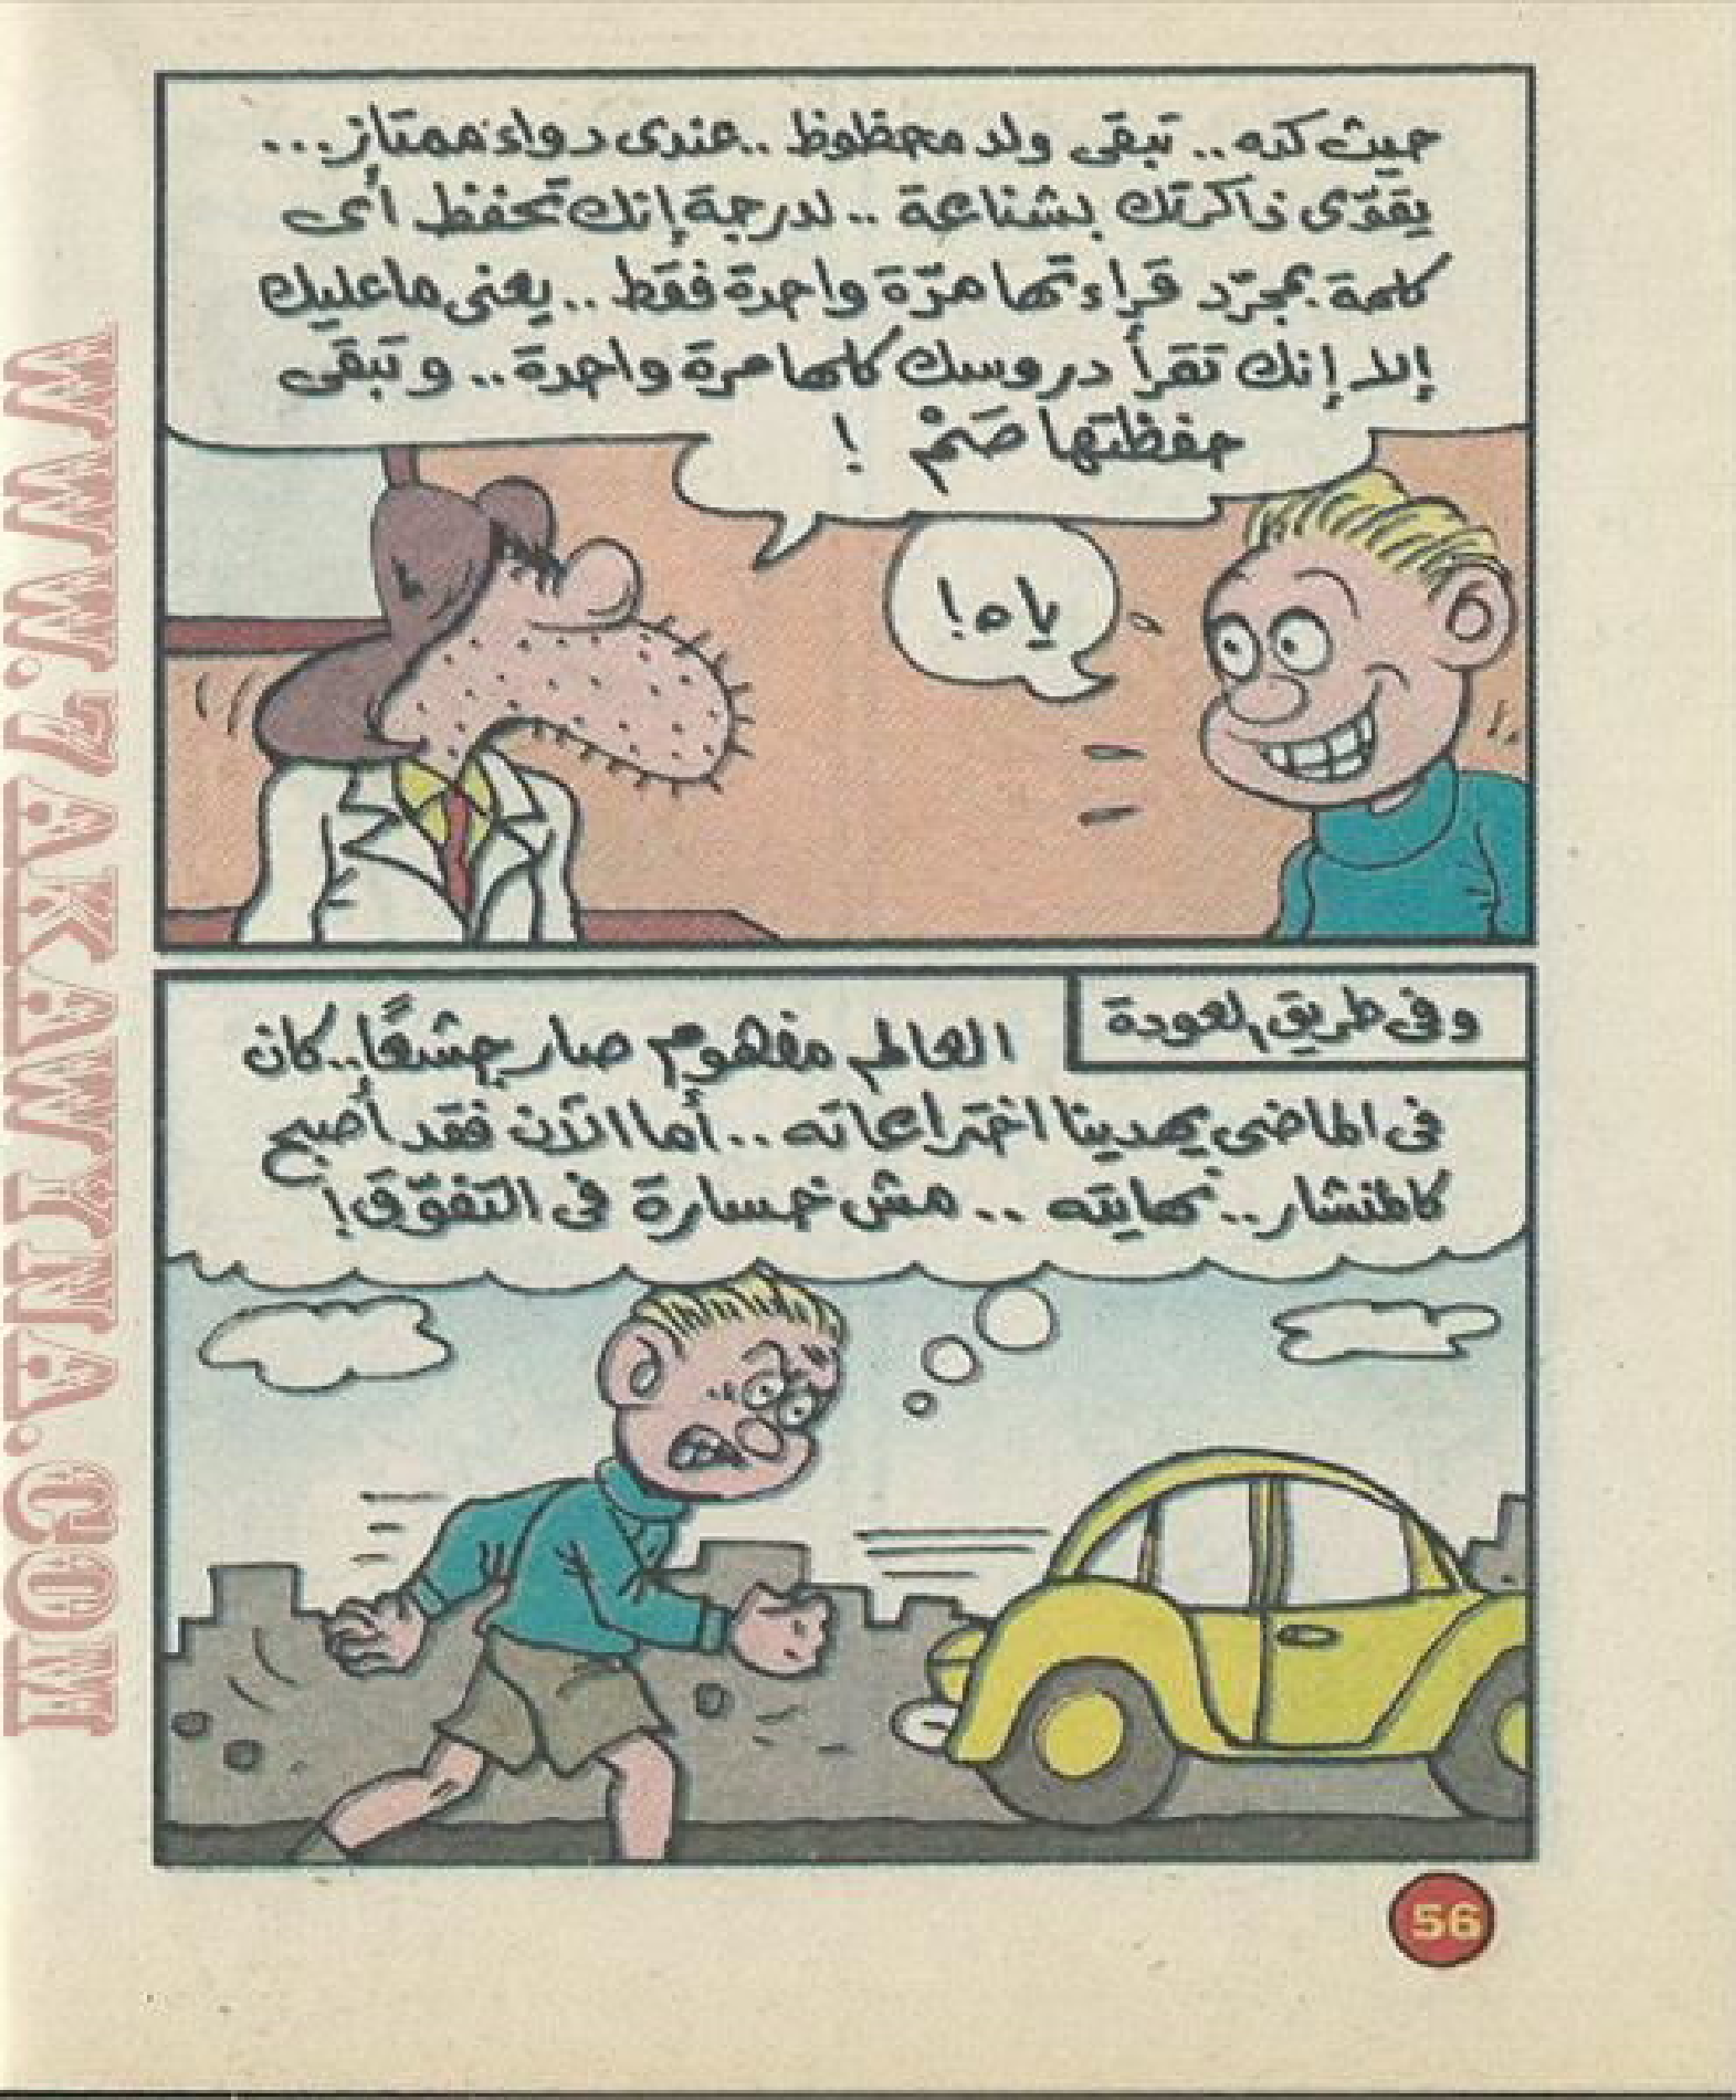 حيث كده.. تبقى ولد محظوظ.. عندى دواء ممتاز...
يقوّى ذاكرتك بشناعة.. لدرجة إنك تحفظ أى
كلمة بمجرّد قراءتها مرّة واحدة فقط.. يعنى ما عليك
إلا إنك تقرأ دروسك كلها مرة واحدة.. وتبقى
حفظتها صَمْ !
ياه!
وفى طريق العودة
العالم مفهوم صار جشعًا.. كان
فى الماضى يهدينا اختراعاته.. أما الآن فقد أصبح
كالمنشار.. نهايته.. مش خسارة فى التفوّق!
56
WWW.7AKAWINA.COM